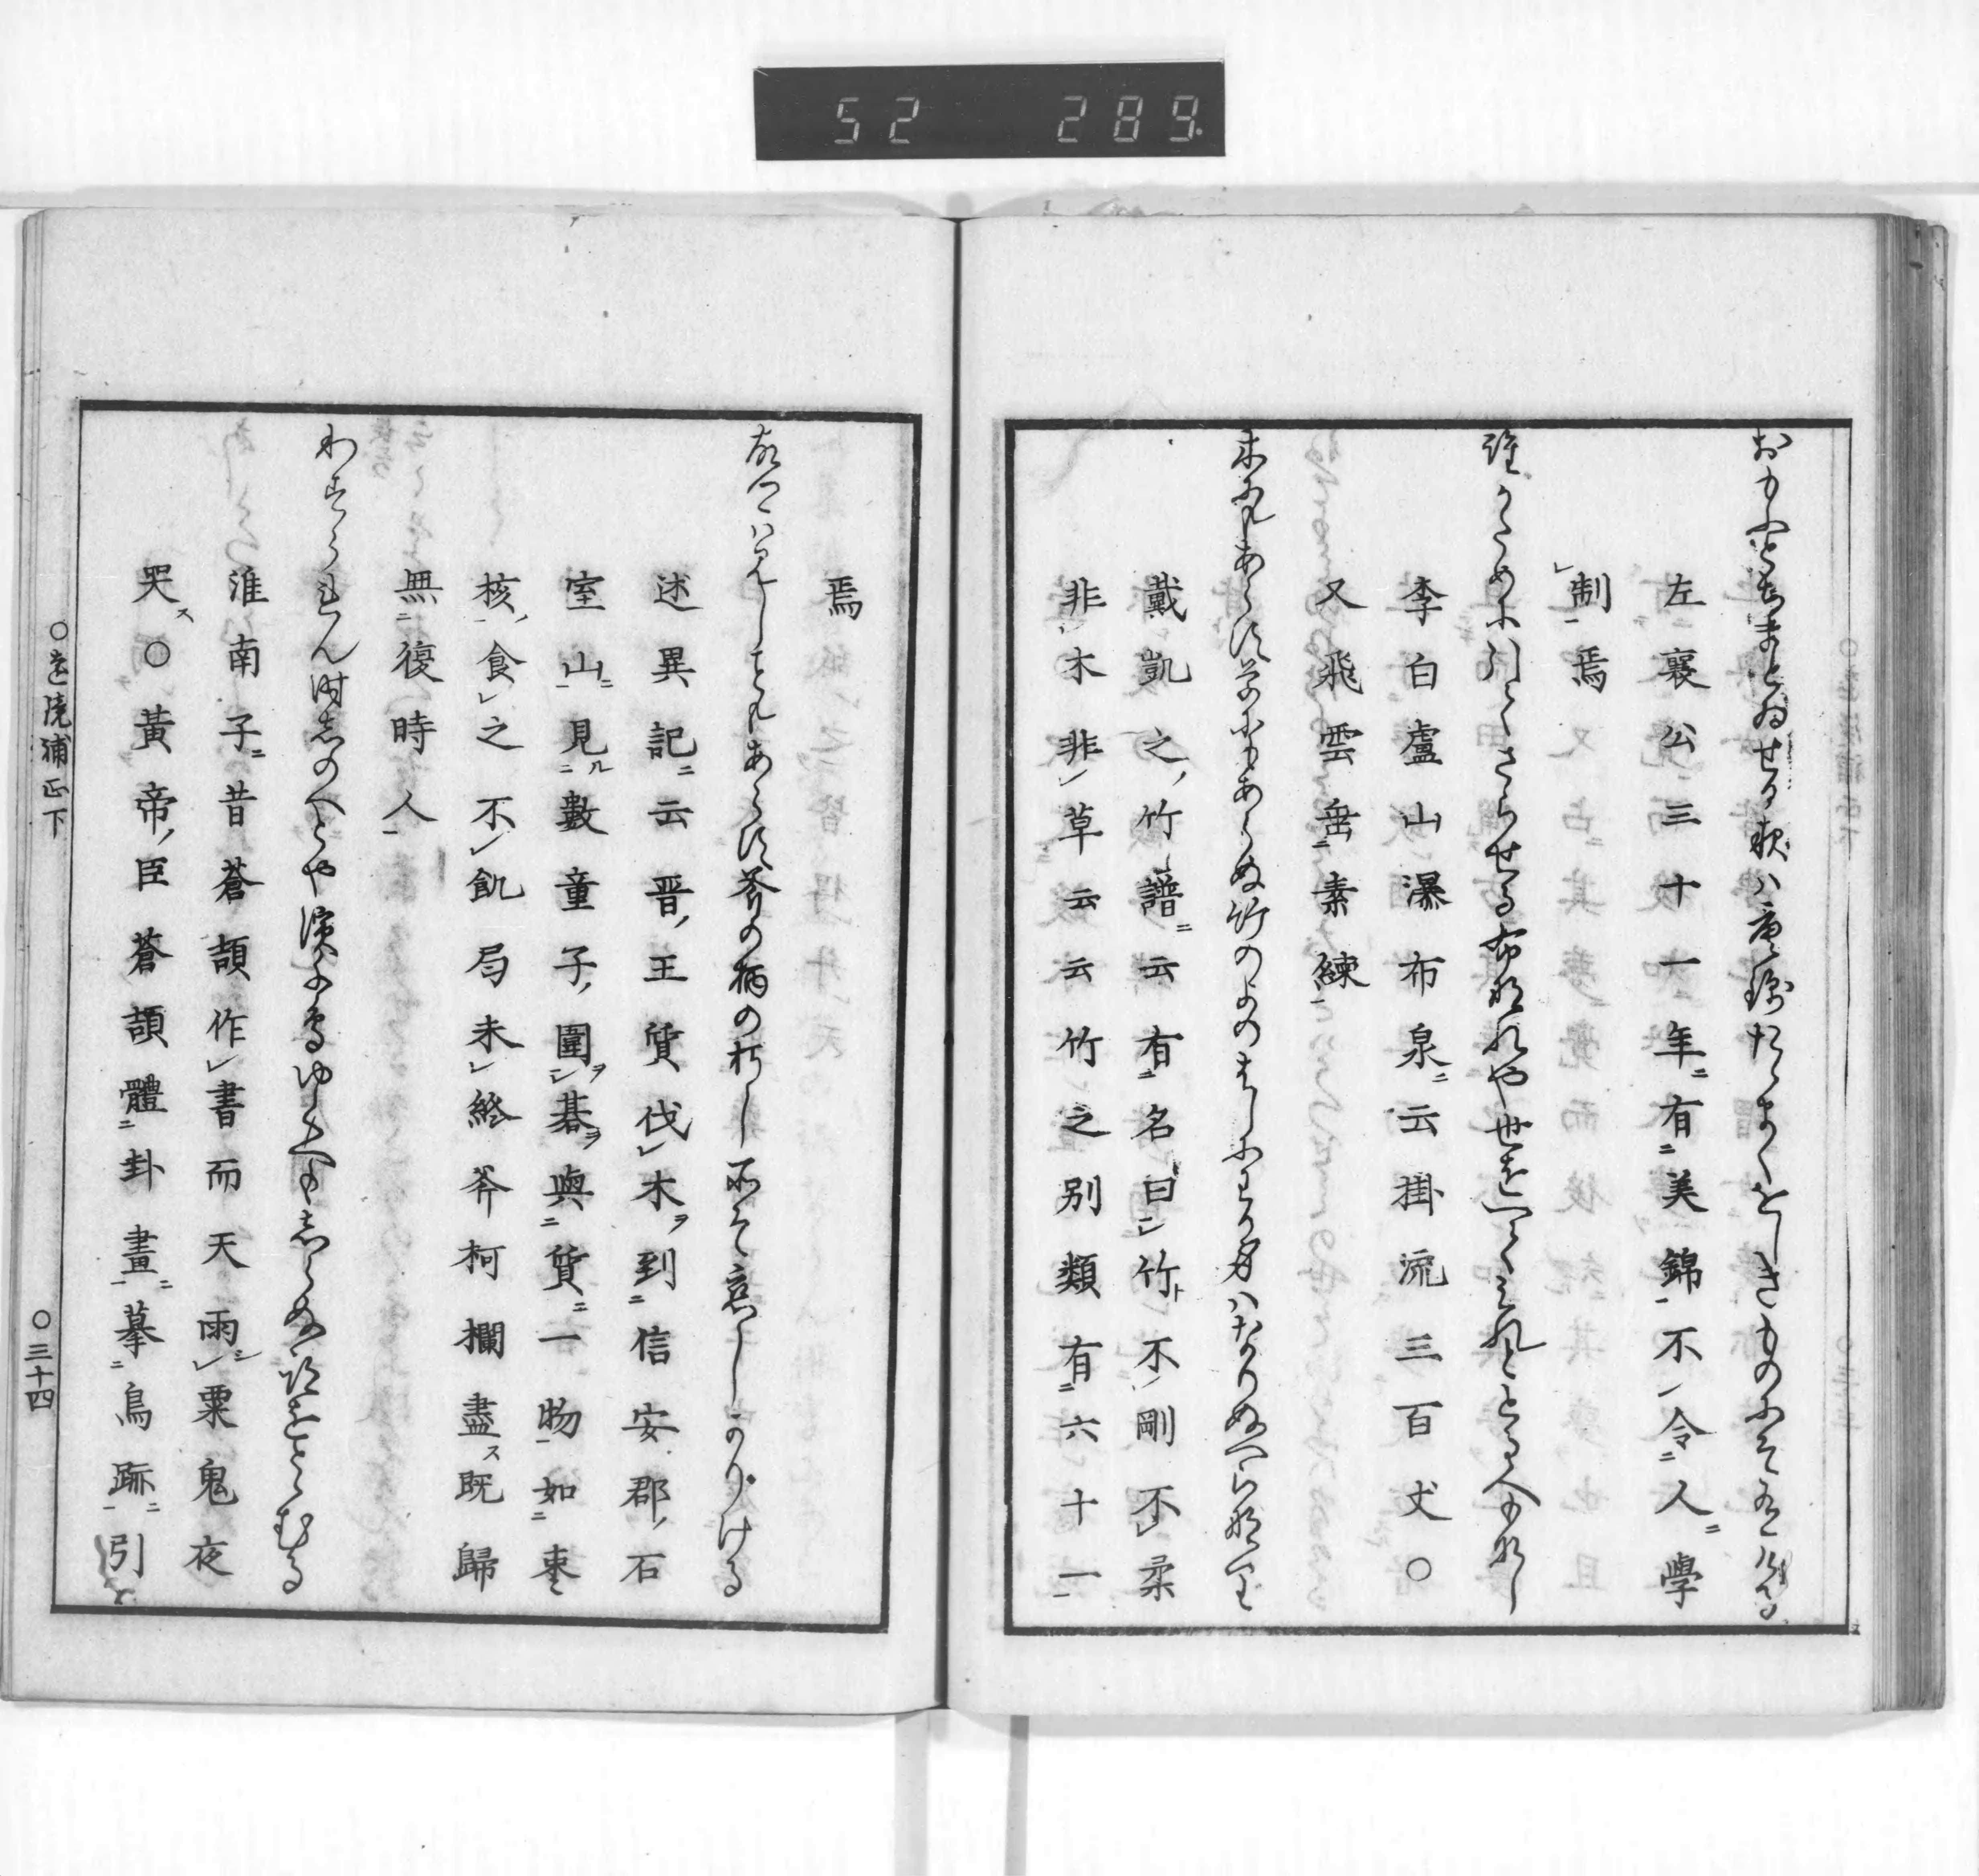 52 289
おもふとちまとゐせる夜は唐錦たゝまくをしきものにそ有ける
左襄公三十一年有美錦不令人學
制焉
誰かために引てさらせる布なれや世をへて見れととる人もなし
李白盧山瀑布泉云掛流三百丈〇
又飛雲垂素練
木にもあらす草にもあらぬ竹のよのはしにわか身はなりぬへらなり
戴凱之竹譜云有名曰竹不剛不柔
非木非草云云竹之別類有六十一
焉
故さとは見しこともあらす斧の柄の朽し所そ恋しかりける
述異記云晋王質伐木到信安郡石
室山見數童子圍碁與質一物如棗
核食之不飢局未終斧柯欄盡既歸
無復時人
わすられん時しのへとや濱千鳥ゆくへもしらぬ跡をとゝむる
淮南子昔蒼頡作書而天雨粟鬼夜
哭〇黃帝臣蒼頡體卦畫摹鳥跡引
〇三十四